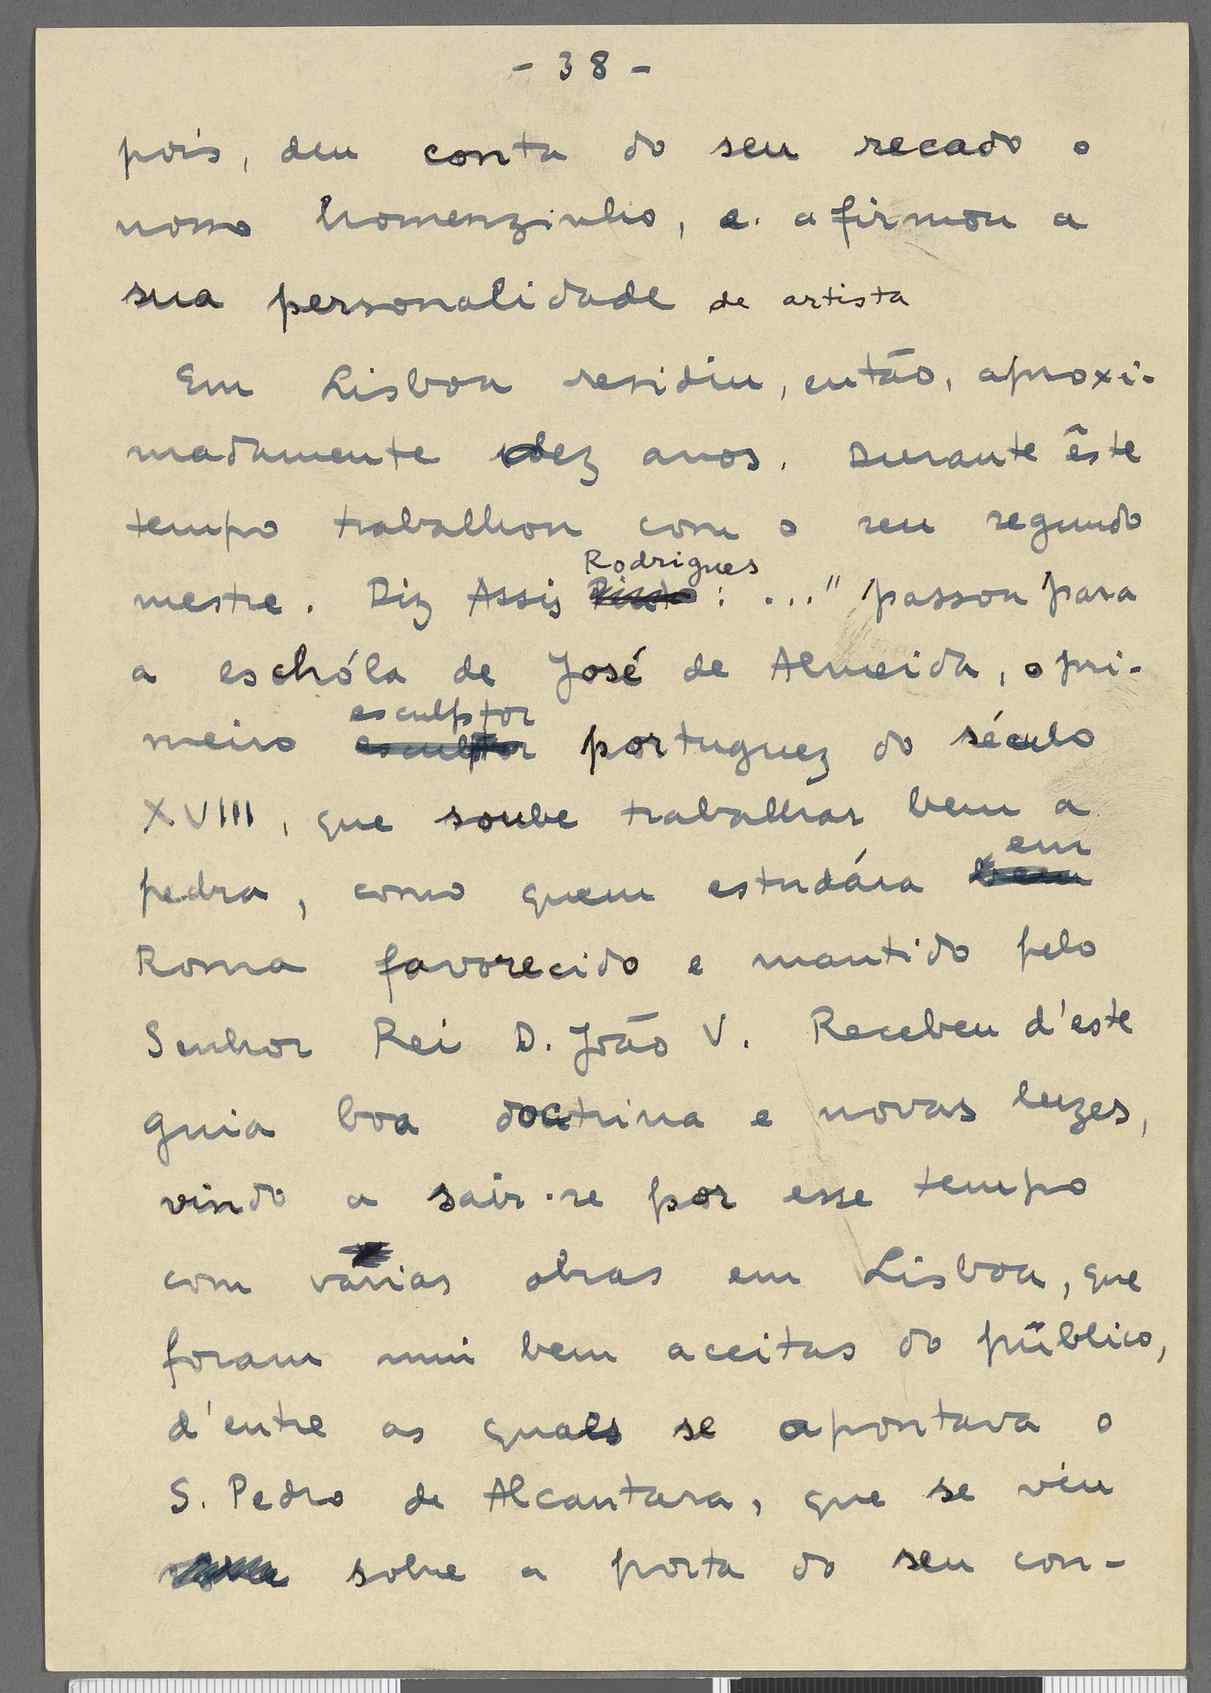 - 38 -
pois, deu conta do seu recado o
nosso homenzinho, e. afirmou a
sua personalidade de artista
Em Lisboa residiu, então, aproxi-
madamente dez anos. Durante êste
tempo trabalhou com o seu segundo
Rodrigues
mestre. Diz Assis Pinto : ..." passou para
a eschóla de José de Almeida, o pri-
esculptor
meiro esculptor portuguez do século
XVIII, que soube trabalhar bem a
em
pedra, como quem estudára bem
Roma favorecido e mantido pelo
Senhor Rei D. João V. Recebeu d'este
guia boa doctrina e novas luzes,
vindo a sair-se por esse tempo
com varias obras em Lisboa, que
foram mui bem aceitas do público,
d'entre as quaes se apontava o
S. Pedro de Alcantara, que se véu
sobre a porta do seu con-